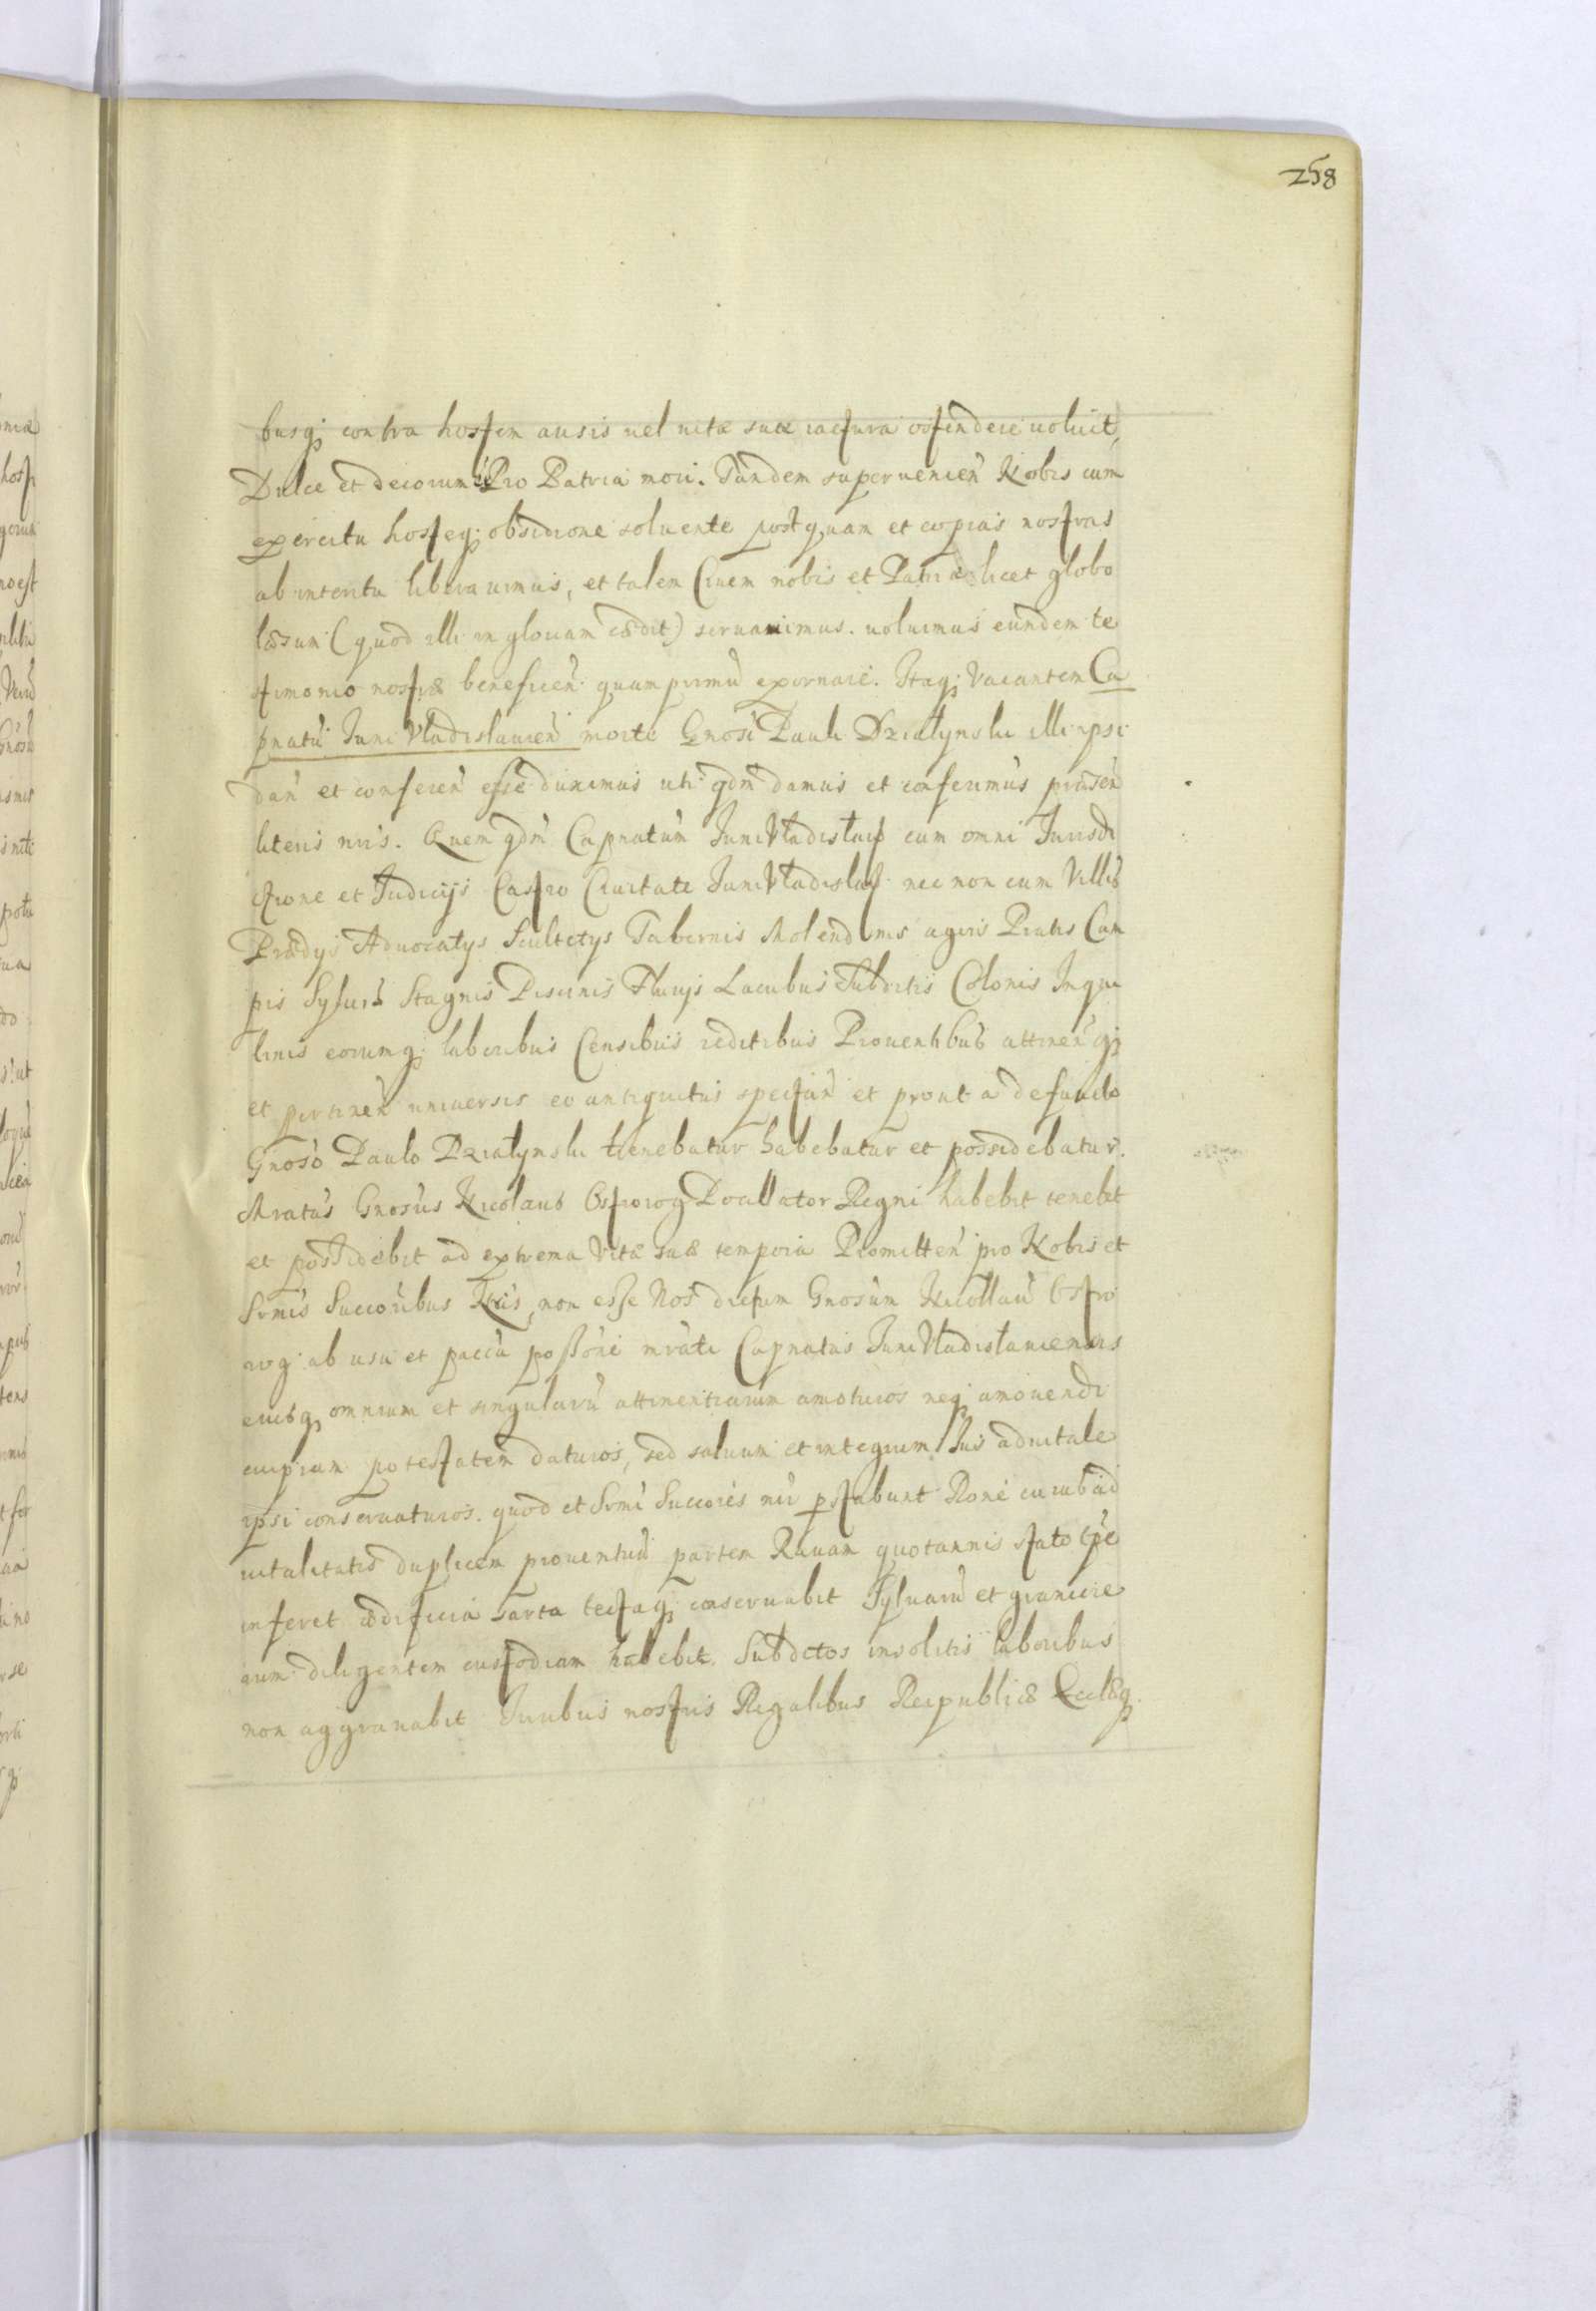 258
busq; contra hostem ausis uel uitæ suæ iactura ostendere uoluit,
Dulce et decorum Pro Patria mori. Tandem superuenien̄ Nobis cum
exercitu hosteq; obsidione soluente postquam et copias nostras
ab interitu liberauimus, et talem Ciuem nobis et Patriæ licet globo
læsum (quod illi in gloriam cædit) seruauimus. uoluimus eundem te
stimonio nostræ beneficen̄ quamprimū exornare. Itaq; Vacantem Ca
pnatū Juni Vladislauien̄ morte Gnosi Pauli Działynski illi ipsi
dan̄ et conferen̄ esse duximus uti qdm̄ damus et conferimus præsen̄
literis nr̄is. Quem qdm̄ Capnatum JuniVladislau cum omni Jurisdi
ctione et Judicijs Castro Ciuitate JuniVladislau nec non cum Villis
Prædijs Aduocatys Scultetys Tabernis Molendinis agris Pratis Cam
pis Syluis Stagnis Piscinis Fluuijs Lacubus Subditis Colonis Inqui
linis eorumq; laboribus Censibus reditibus Prouentibus attinen̄ q;
et pertinen̄ uniuersis eo antiquitus spectan̄ et prout a defuncto
Gnoso Paulo Działynski tenebatur habebatur et possidebatur.
Mratus Gnosus Nicolaus Ostrorog Pocillator Regni habebit tenebit
et possidebit ad extrema Vitæ suæ tempora Promitten̄ pro Nobis et
Srmis Succoribus Nris, non esse Nos dictum Gnosum Nicollaū Ostro
rog ab usu et paccā possōne mrati Capnatus JuniVladislauiensis
eiusq; omnium et singularū attinentiarum amoturos neq; amouendi
cuipiam potestatem daturos, sed saluum et integrum Jus aduitale
ipsi conseruaturos. quod et Srmi Succores nri pstabunt Rone cuius ad
uitalitatis duplicem prouentuū partem Rauam quotannis stato tpe
inferet ædificia sarta tectaq; conseruabit Syluarū et granicie
rum diligentem custodiam habebit. Subditos insolitis laboribus
non aggrauabit Juribus nostris Regalibus Reipublicæ Ecclæq.